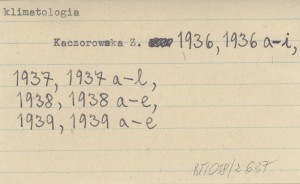 klimatologia
Kaczorowska Z. 1936, 1936 a-i,
1937, 1937 a-l,
1938, 1938 a-e,
1939, 1939 a-e